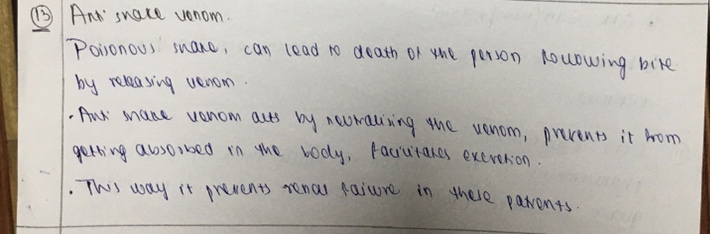 (13) Anti snake venom.
Poisonous snake, can lead to death of the person following bite
by releasing venom.
• Anti snake venom acts by neutralising the venom, prevents it from
getting absorbed in the body, facilitates excretion.
• This way it prevents renal failure in these patients.